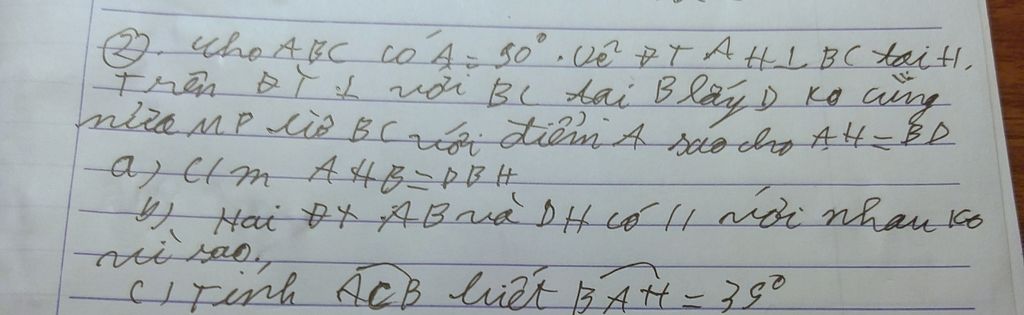 ②. Cho ABC có A = 90°. Vẽ ĐT AH ⊥ BC tại H.
Trên ĐT ⊥ với BC tại B lấy D ko cùng
nửa MP bờ BC với điểm A sao cho AH = BD
a) C/m AHB = DBH
b) Hai ĐT AB và DH có // với nhau ko
vì sao.
c) Tính ACB biết BAH = 35°